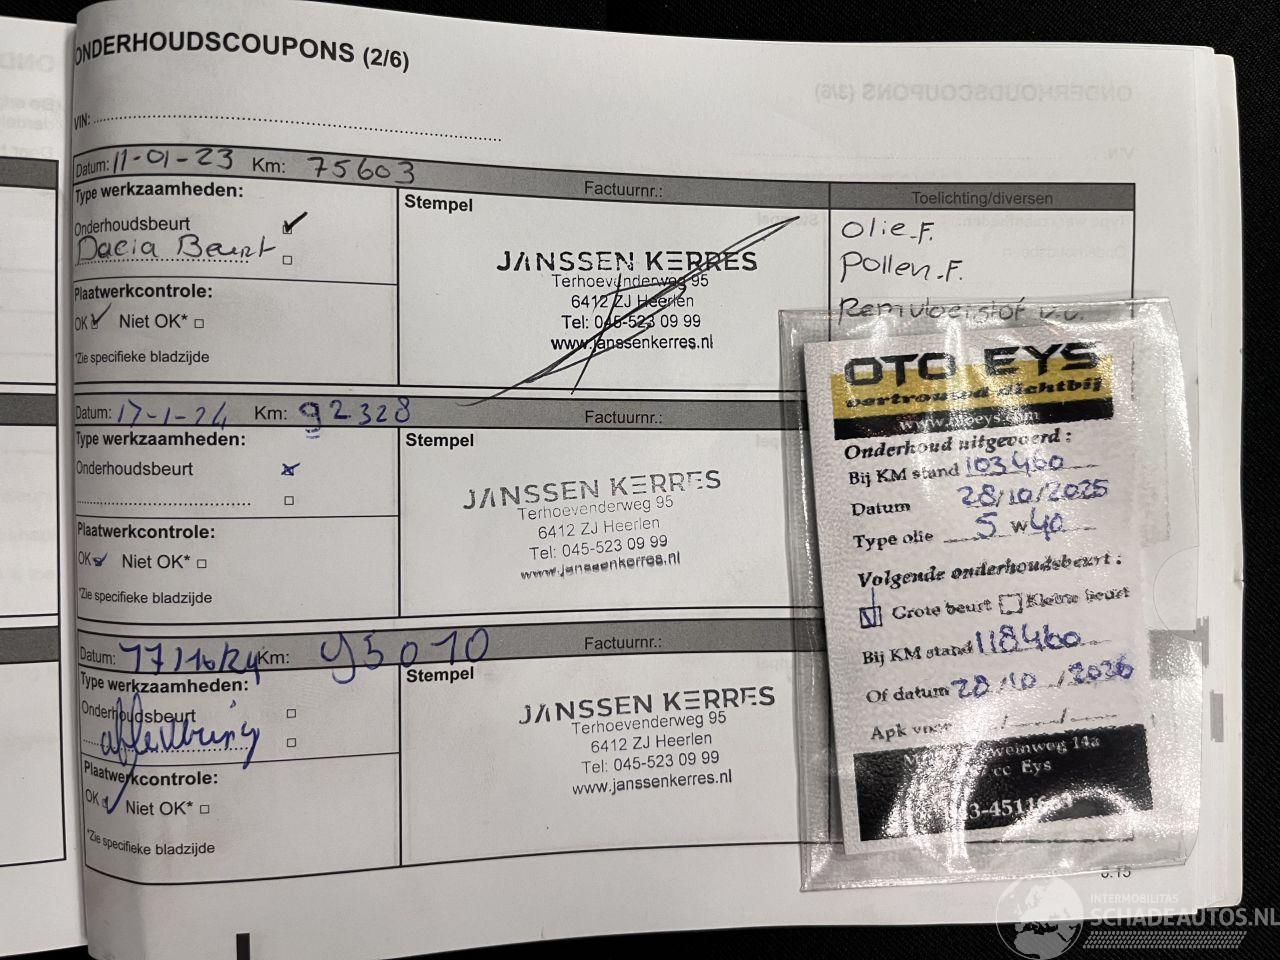 ONDERHOUDSCOUPONS (2/6)
VIN:
Datum: 11-01-23 Km: 75603
Factuurnr.:
Type werkzaamheden:
Onderhoudsbeurt
Dacia Beurt
Plaatwerkcontrole:
OK Niet OK*
*Zie specifieke bladzijde
Stempel
JANSSEN KERRES
Terhoevenderweg 95
6412 ZJ Heerlen
Tel: 045-523 09 99
www.janssenkerres.nl
Toelichting/diversen
Olie.F.
Pollen.F.
Remvloeistof v.v.
Datum: 17-1-24 Km: 92328
Factuurnr.:
Type werkzaamheden:
Onderhoudsbeurt
Plaatwerkcontrole:
OK Niet OK*
*Zie specifieke bladzijde
Stempel
JANSSEN KERRES
Terhoevenderweg 95
6412 ZJ Heerlen
Tel: 045-523 09 99
www.janssenkerres.nl
Datum: 17/10/24 Km: 95010
Factuurnr.:
Type werkzaamheden:
Onderhoudsbeurt
aflevering
Plaatwerkcontrole:
OK Niet OK*
*Zie specifieke bladzijde
Stempel
JANSSEN KERRES
Terhoevenderweg 95
6412 ZJ Heerlen
Tel: 045-523 09 99
www.janssenkerres.nl
OTO EYS
vertrouwd dichtbij
www.otoeys.com
Onderhoud uitgevoerd :
Bij KM stand 103460
Datum 28/10/2025
Type olie 5 w40
Volgende onderhoudsbeurt :
Grote beurt Kleine beurt
Bij KM stand 118460
Of datum 28/10/2026
Apk voor
14a
Eys
6.15
INTERMOBILITAS
SCHADEAUTOS.NL